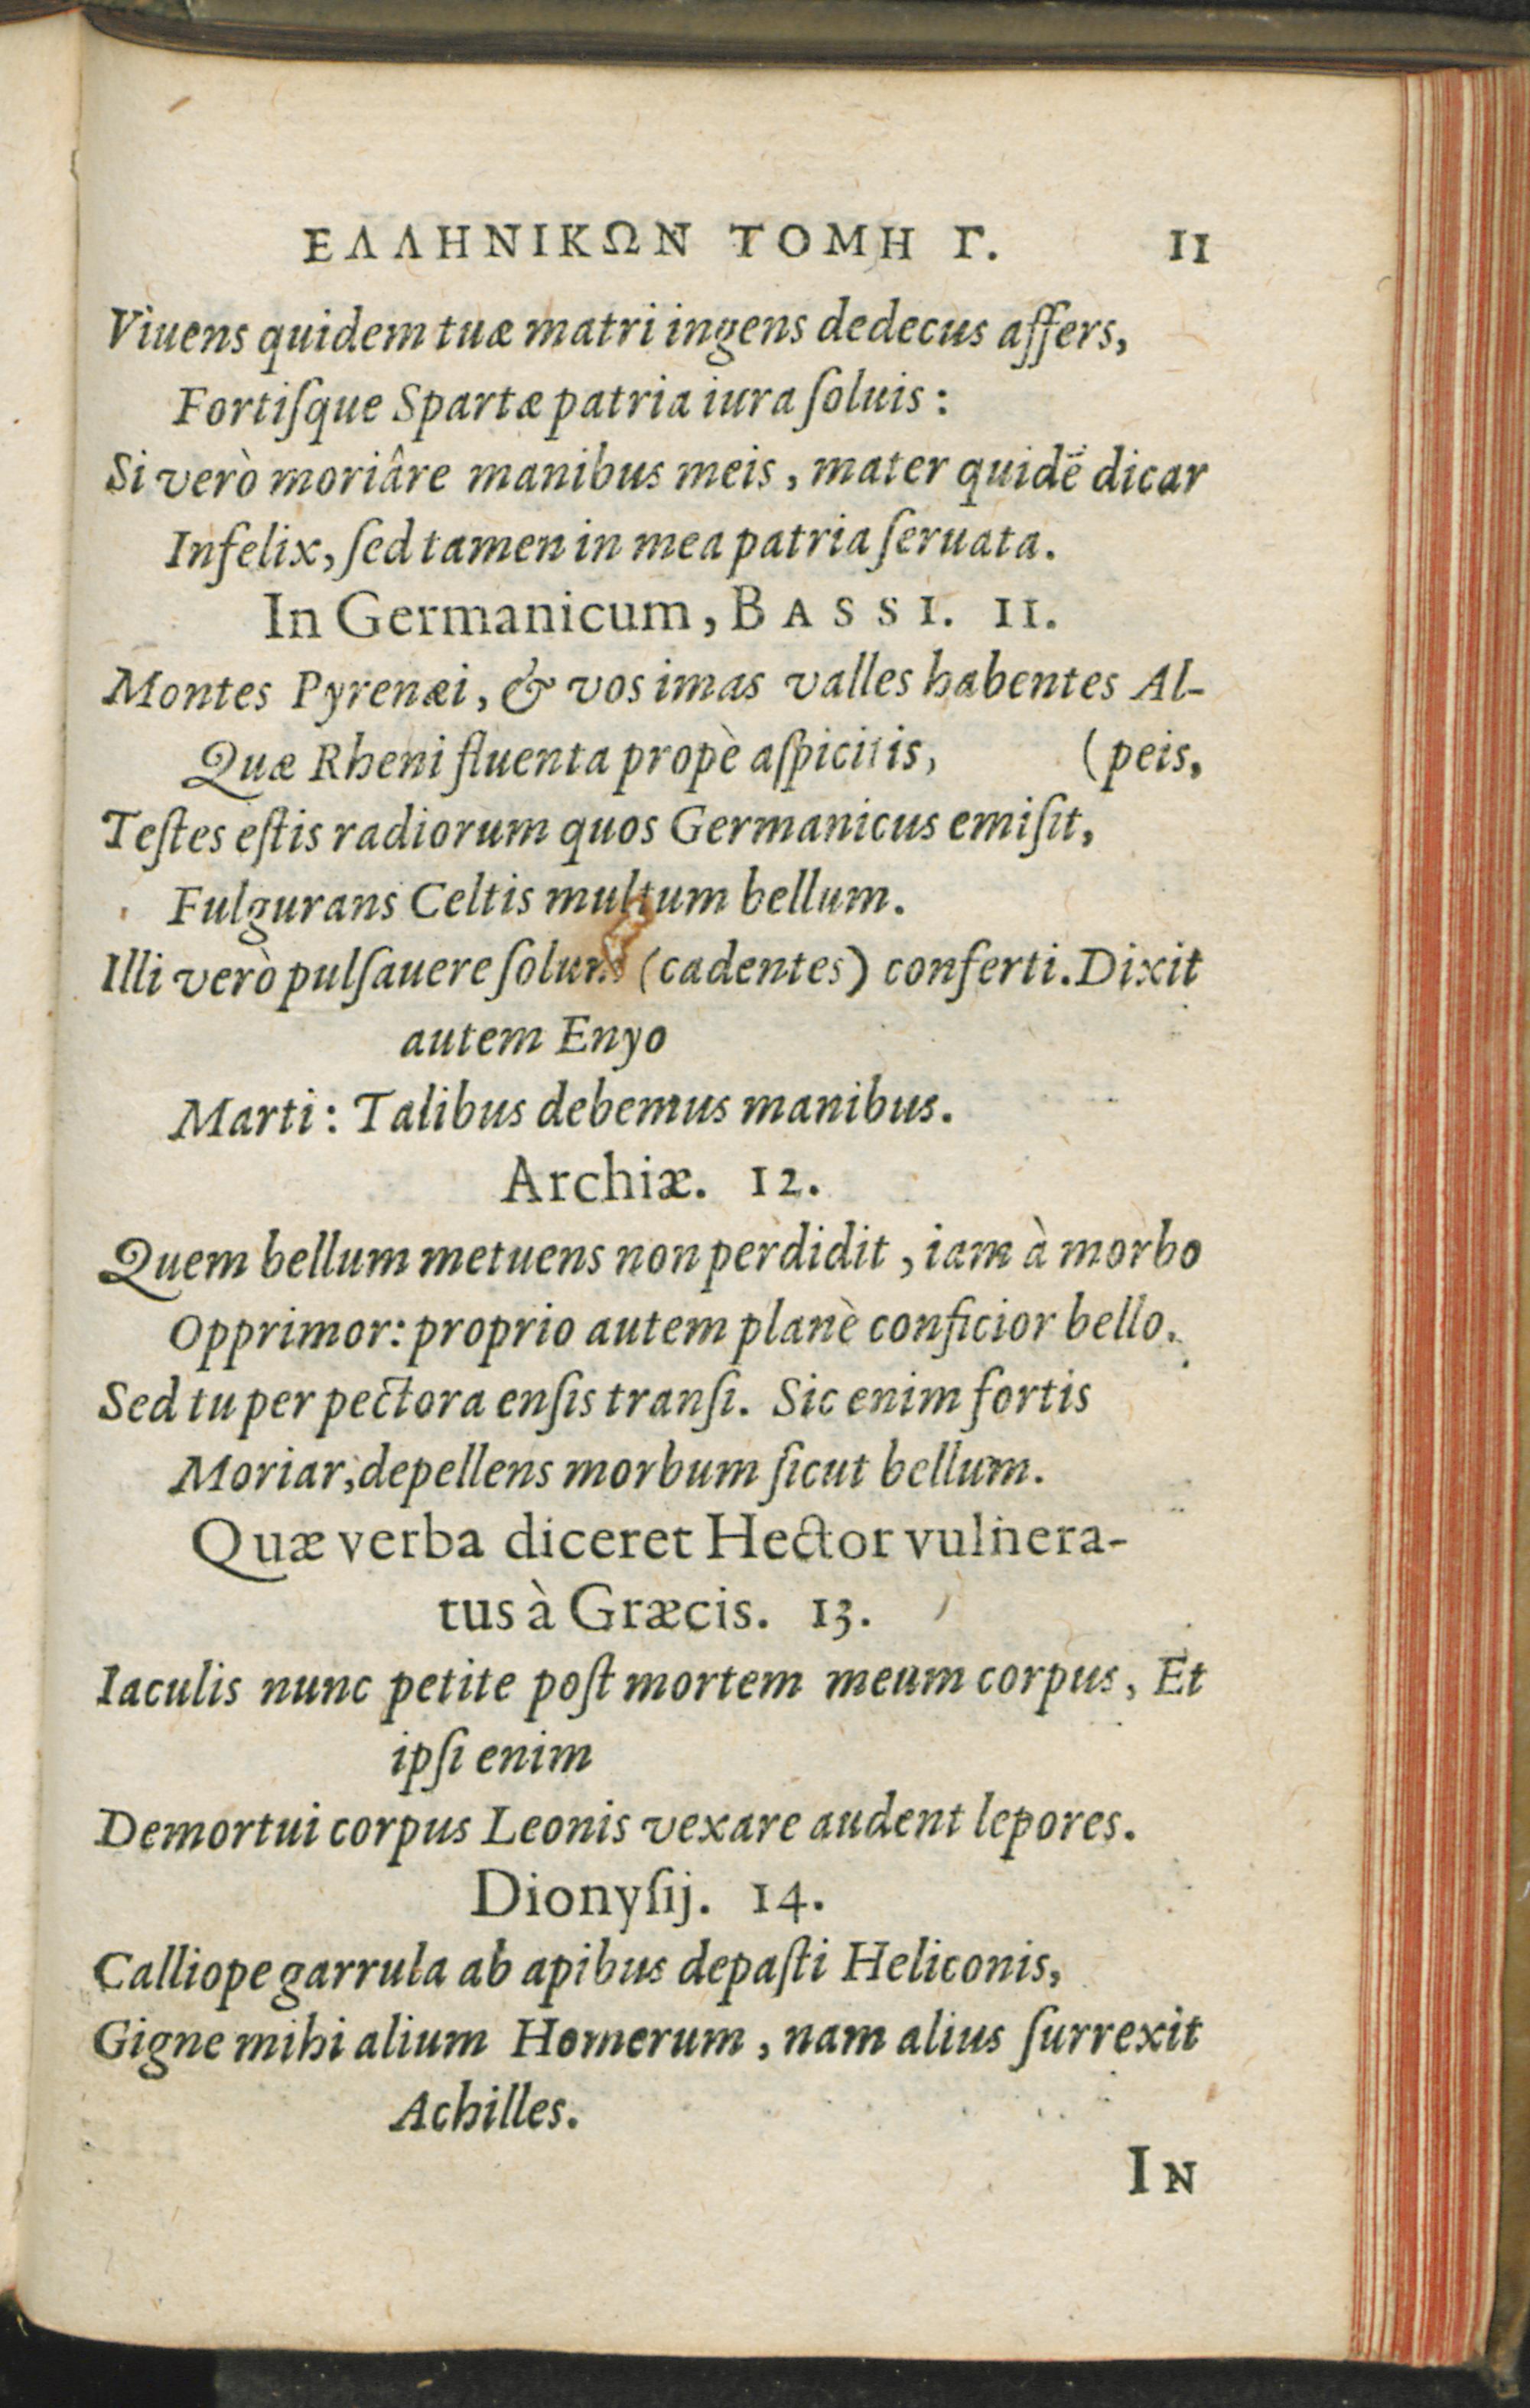 ΕΛΛΗΝΙΚΩΝ ΤΟΜΗ Γ. 11
Viuens quidem tuæ matri ingens dedecus affers,
Fortiſque Spartæ patria iura ſoluis:
Si verò moriâre manibus meis, mater quidē dicar
Infelix, ſed tamen in mea patria ſeruata.
In Germanicum, BASSI. 11.
Montes Pyrenæi, & vos imas valles habentes Al-
Quæ Rheni fluenta propè aſpicitis, (peis,
Teſtes eſtis radiorum quos Germanicus emiſit,
Fulgurans Celtis multum bellum.
Illi verò pulſauere ſolum (cadentes) conferti. Dixit
autem Enyo
Marti: Talibus debemus manibus.
Archiæ. 12.
Quem bellum metuens non perdidit, iam à morbo
Opprimor: proprio autem planè conficior bello.
Sed tu per pectora enſis tranſi. Sic enim fortis
Moriar, depellens morbum ſicut bellum.
Quæ verba diceret Hector vulnera-
tus à Græcis. 13.
Iaculis nunc petite poſt mortem meum corpus, Et
ipſi enim
Demortui corpus Leonis vexare audent lepores.
Dionyſij. 14.
Calliope garrula ab apibus depaſti Heliconis,
Gigne mihi alium Homerum, nam alius ſurrexit
Achilles.
IN